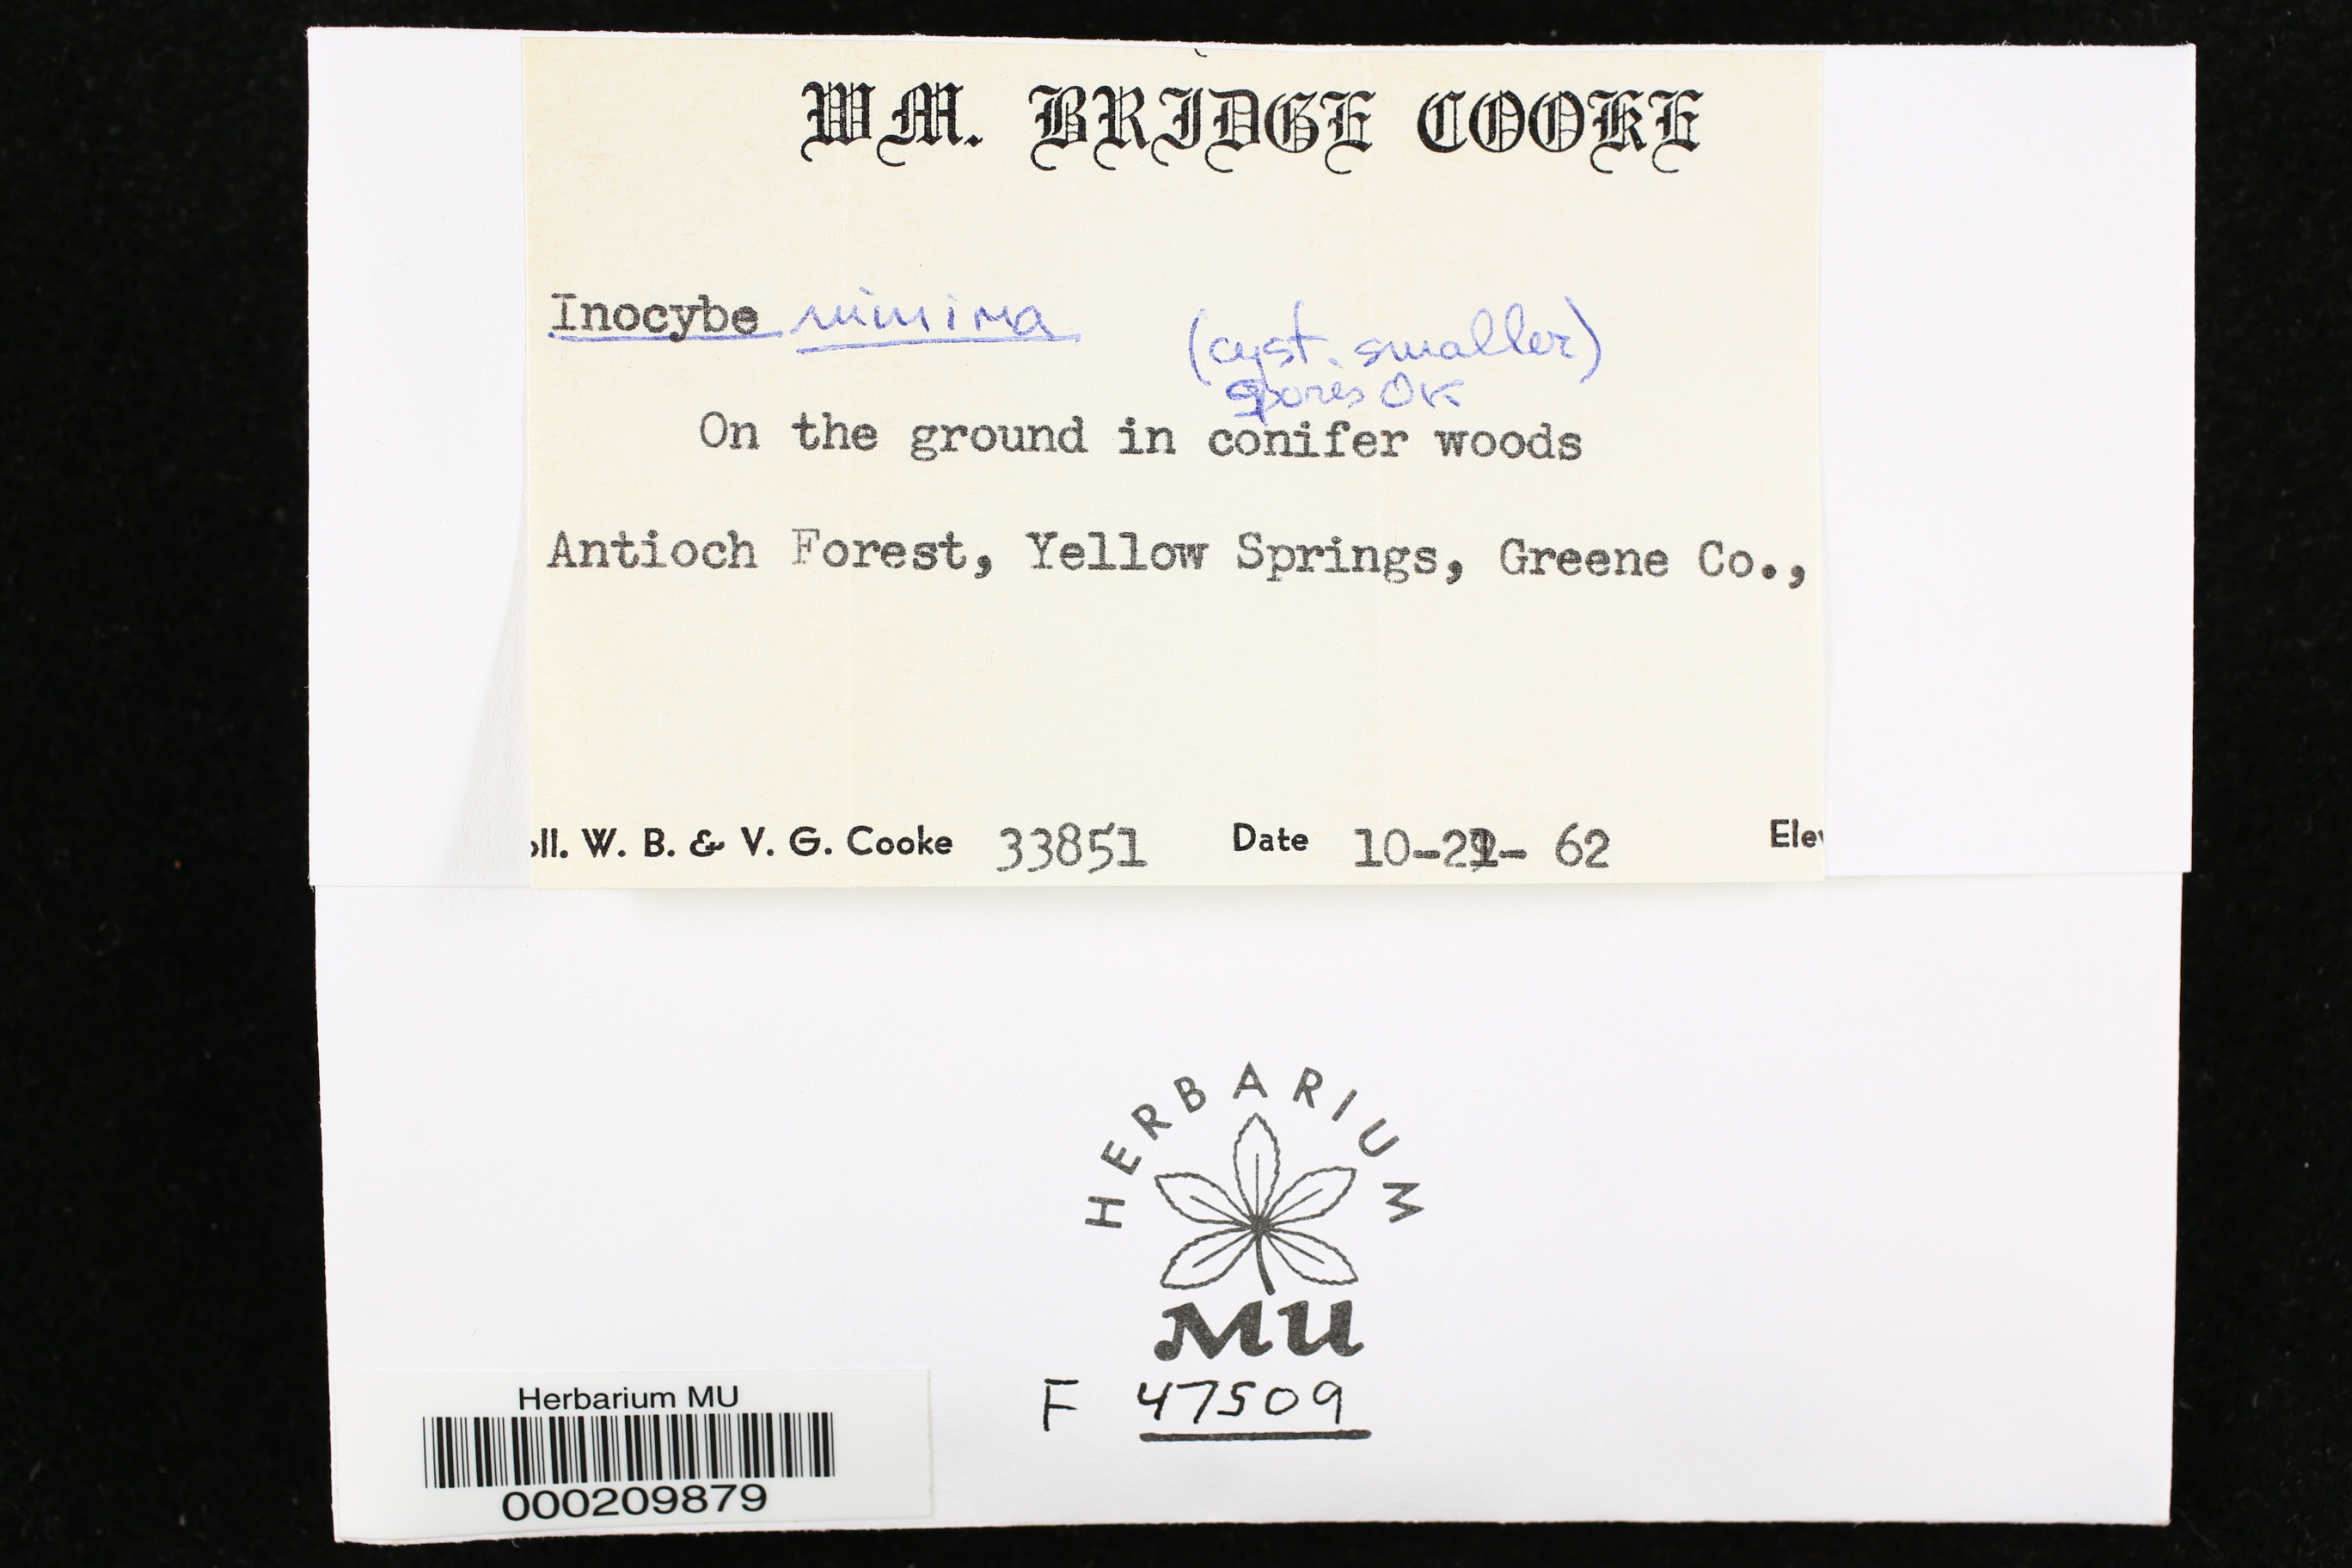 WM. BRIDGE COOKE
Inocybe minima
(cyst. smaller)
spores OK
On the ground in conifer woods
Antioch Forest, Yellow Springs, Greene Co.,
oll. W. B. & V. G. Cooke 33851 Date 10- - 62 Elev
HERBARIUM
MU
F 47509
Herbarium MU
000209879